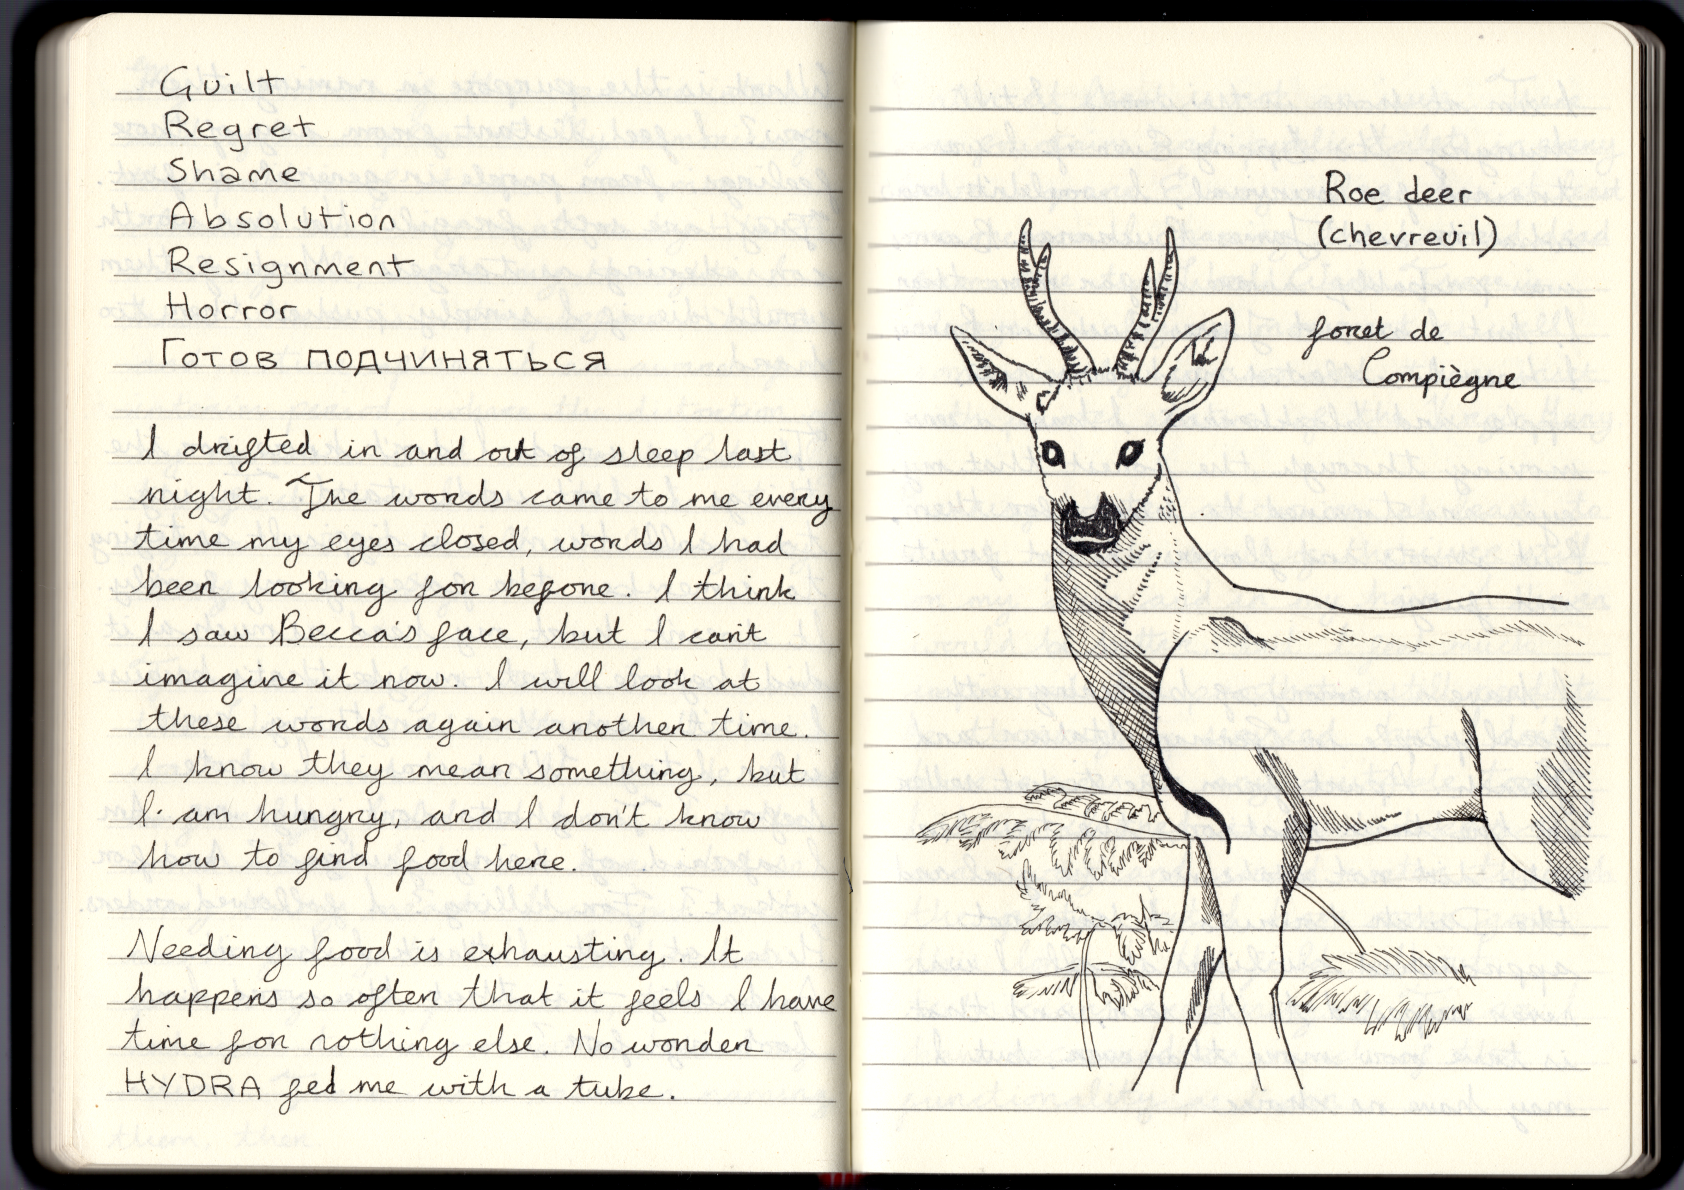 Guilt
Regret
Shame
Absolution
Resignment
Horror
Готов подчиняться
I drifted in and out of sleep last
night. The words came to me every
time my eyes closed, words I had
been looking for before. I think
I saw Becca's face, but I can't
imagine it now. I will look at
these words again another time.
I know they mean something, but
I am hungry, and I don't know
how to find food here.
Needing food is exhausting. It
happens so often that it feels I have
time for nothing else. No wonder
HYDRA fed me with a tube.
Roe deer
(chevreuil)
foret de
Compiègne